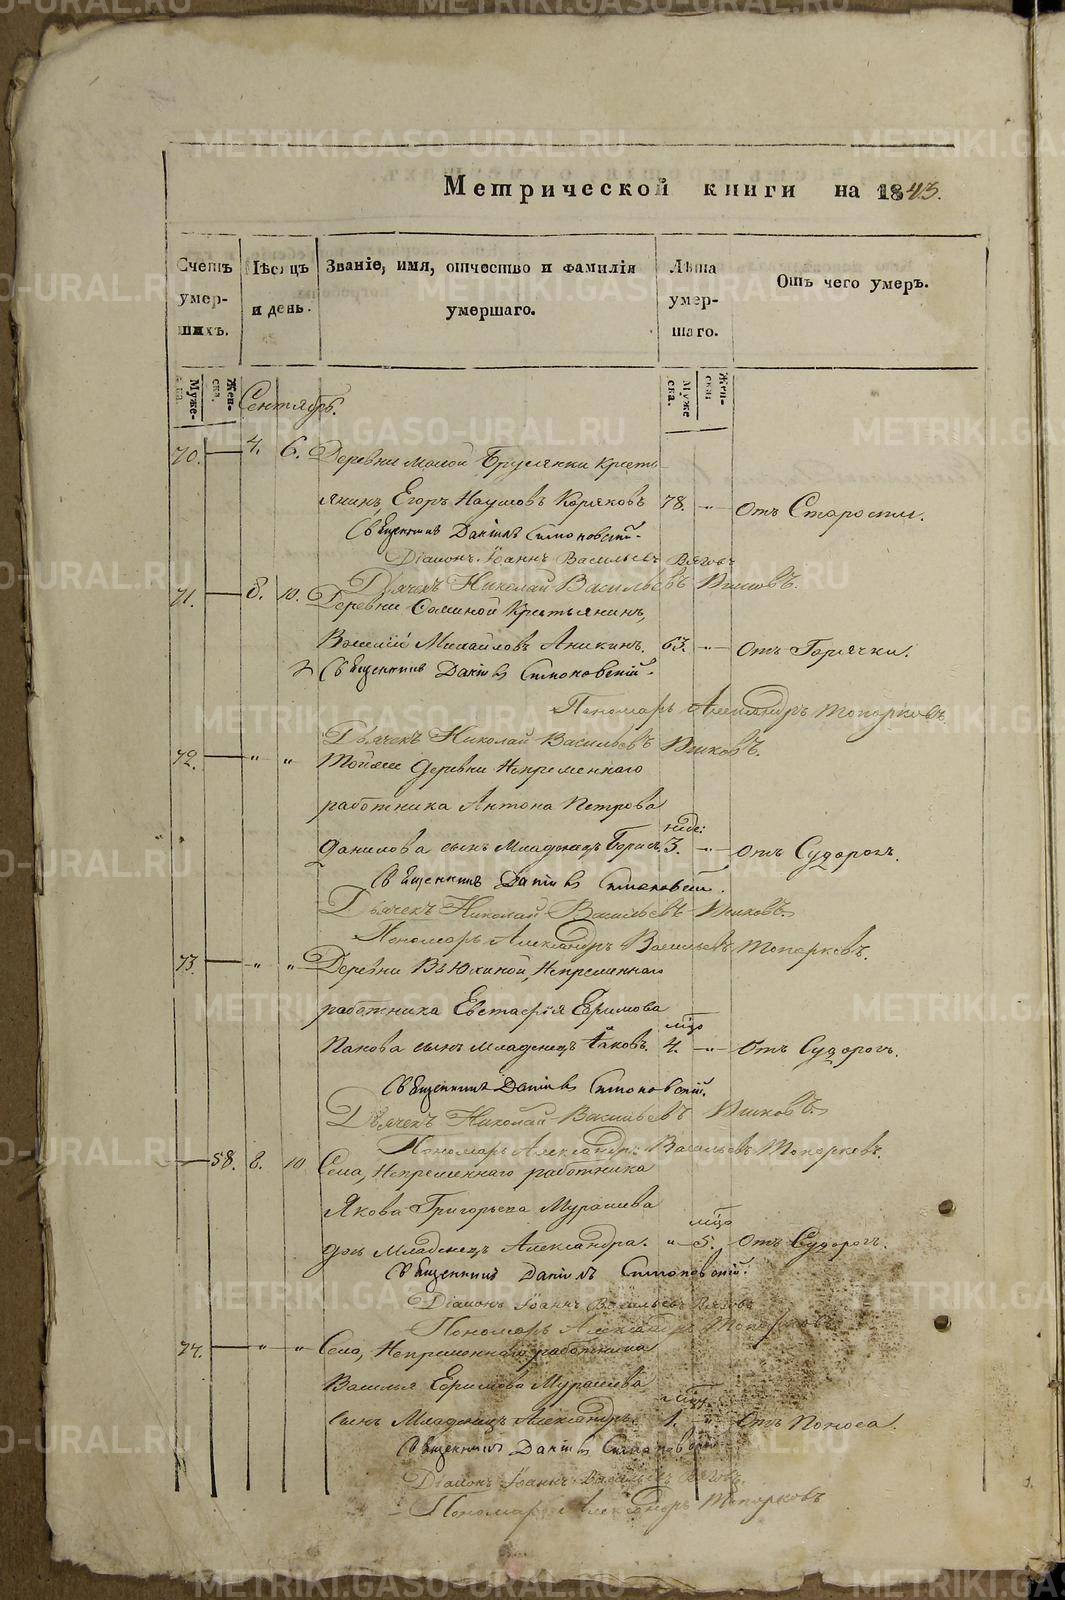 Метрической книги на 1843.
Счетъ умер-шихъ.
Мѣсяцъ и день.
Званіе, имя, отчество и фамилія умершаго.
Лѣта умер-шаго.
Отъ чего умеръ.
Муже-ска.
Жен-ска.
Муже-ска.
Жен-ска.
Сентябрь.
70. — 4. 6. Деревни Малой Брусянки кресть-
янинъ, Егоръ Наумовъ Коряковъ 78. -"- Отъ Старости.
Священникъ Даніилъ Симоновскій.
Діаконъ Іоаннъ Васильевъ
Дьячекъ Николай Васильевъ
71. — 8. 10. Деревни Соминой Крестьянинъ,
Василій Михайловъ Аникинъ. 63. -"- Отъ Горячки.
Священникъ Даніилъ Симоновскій.
Пономарь Александръ Топорковъ
Дьячекъ Николай Васильевъ
72. — " " Тойже деревни Непременнаго
работника Антона Петрова
неде:
Данилова сынъ Младенецъ Борисъ 3. -"- Отъ Судорогъ.
Священникъ Даніилъ Симоновскій.
Дьячекъ Николай Васильевъ
Пономарь Александръ Васильевъ Топорковъ.
73. — " " Деревни Вьюхиной, Непременнаго
работника Евстафія Ефимова
мѣс
Панова сынъ младенецъ Іаковъ. 4. -"- Отъ Судорогъ.
Священникъ Даніилъ Симоновскій.
Дьячекъ Николай Васильевъ
Пономарь Александръ Васильевъ Топорковъ.
— 58. 8. 10 Села, Непременнаго работника
Якова Григорьева Мурашева
мѣс
дочь Младенецъ Александра. " 5. Отъ Судорогъ.
Священникъ Даніилъ Симоновскій.
Діаконъ Іоаннъ Васильевъ
Пономарь Александръ Топорковъ
74. — " " Села, Непременнаго работника
Василья Ефимова Мурашева
мѣсяц.
сынъ Младенецъ Александръ. 1. " Отъ Поноса.
Священникъ Даніилъ Симоновскій
Діаконъ Іоаннъ Васильевъ
Пономарь Александръ Топорковъ
METRIKI.GASO-URAL.RU